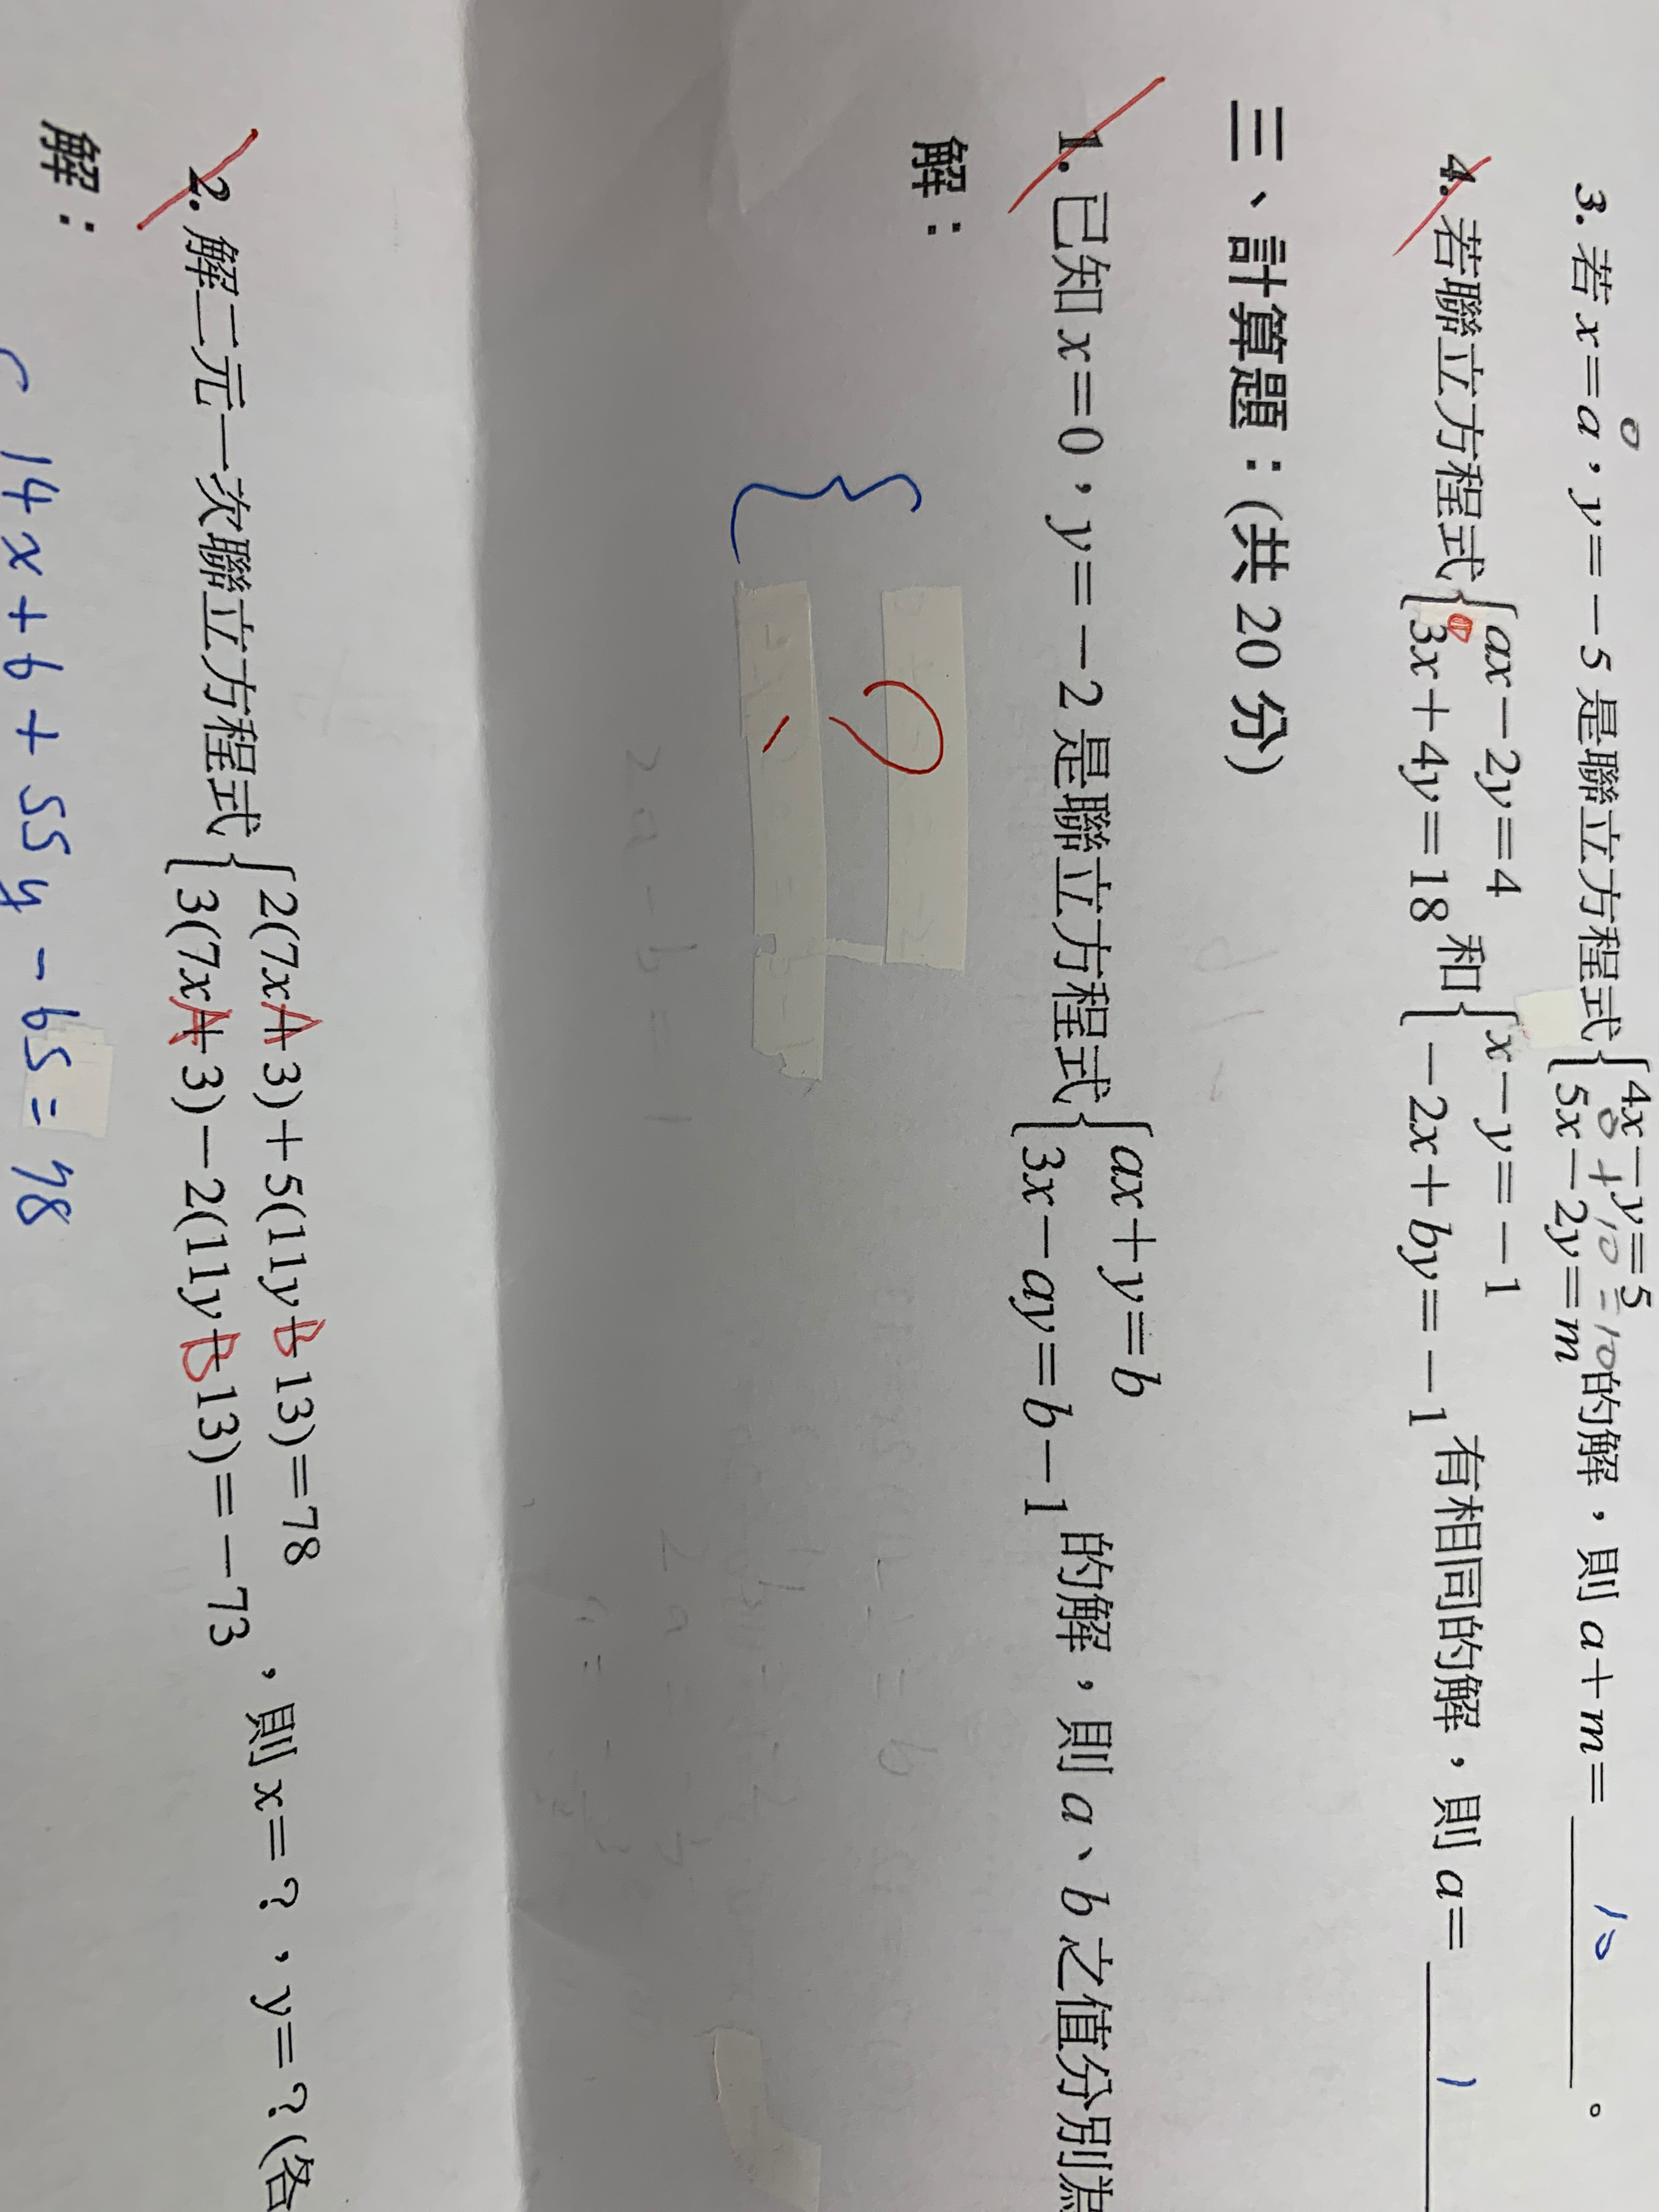 3. 若 x=a，y=-5 是聯立方程式{4x-y=5 的解，則 a+m= 10 。
0
5x-2y=m
0+10=10
4. 若聯立方程式{ax-2y=4 和{x-y=-1 有相同的解，則 a= 1
3x+4y=18 -2x+by=-1
三、計算題：(共 20 分)
1. 已知 x=0，y=-2 是聯立方程式{ax+y=b 的解，則 a、b 之值分別為
3x-ay=b-1
解：
{
?
2a-b=1
2. 解二元一次聯立方程式{2(7x+3)+5(11y-13)=78 ，則 x=？，y=？(各
A B
3(7x+3)-2(11y-13)=-73
A B
解：
14x+6+55y-65=78